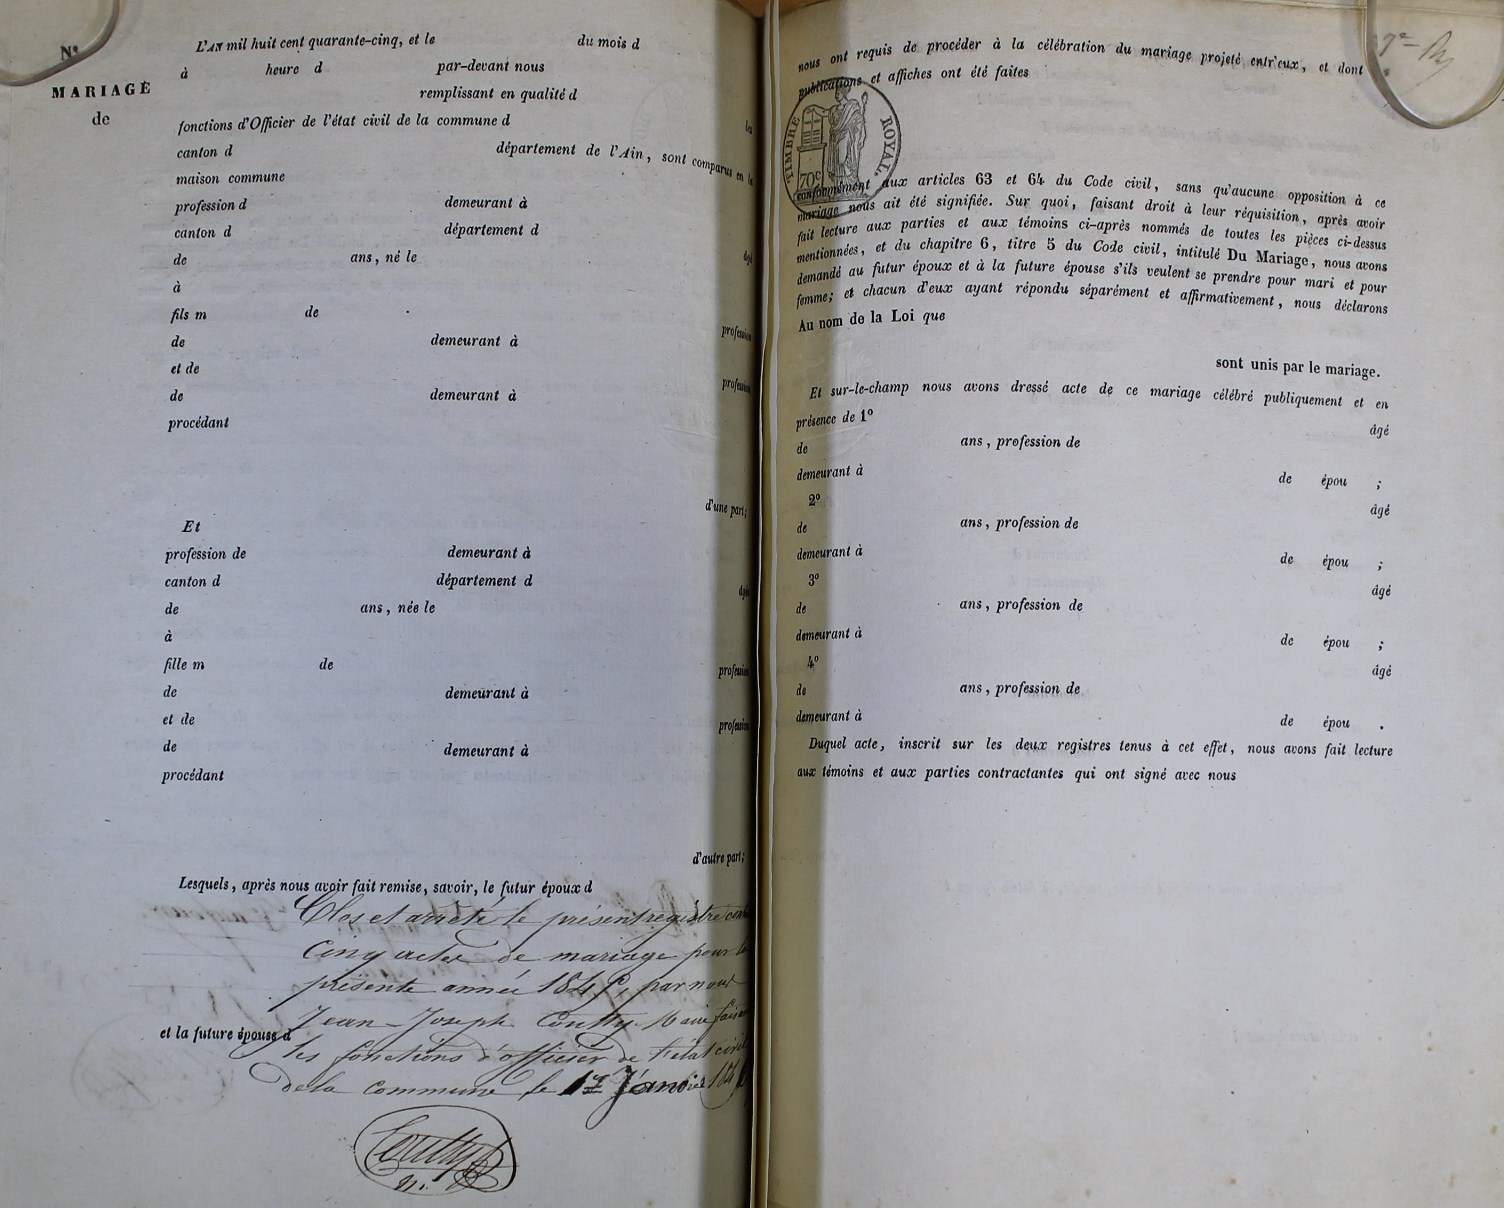 N°
MARIAGE
de
L'AN mil huit cent quarante-cinq, et le du mois d
à heure d par-devant nous
remplissant en qualité d
fonctions d'Officier de l'état civil de la commune d les
canton d département de l'Ain, sont comparus en la
maison commune
profession d demeurant à
canton d département d
de ans, né le âgé
à
fils m de
de demeurant à profession
et de
de demeurant à profession
procédant
d'une part;
Et
profession de demeurant à
canton d département d
de ans, née le âgée
à
fille m de
de demeurant à profession
et de
de demeurant à profession
procédant
d'autre part;
Lesquels, après nous avoir fait remise, savoir, le futur époux d
Clos et arrêté le présent registre
Cinq actes de mariage pour la
présente année 1845, par nous
Jean-Joseph Coutty Maire
et la future épouse d
les fonctions d'officier de l'état civil
de la commune le 1er Janvier
Coutty
m.
nous ont requis de procéder à la célébration du mariage projeté entr'eux, et dont
publications et affiches ont été faites
TIMBRE ROYAL.
70c
conformément aux articles 63 et 64 du Code civil, sans qu'aucune opposition à ce
mariage nous ait été signifiée. Sur quoi, faisant droit à leur réquisition, après avoir
fait lecture aux parties et aux témoins ci-après nommés de toutes les pièces ci-dessus
mentionnées, et du chapitre 6, titre 5 du Code civil, intitulé Du Mariage, nous avons
demandé au futur époux et à la future épouse s'ils veulent se prendre pour mari et pour
femme; et chacun d'eux ayant répondu séparément et affirmativement, nous déclarons
Au nom de la Loi que
sont unis par le mariage.
Et sur-le-champ nous avons dressé acte de ce mariage célébré publiquement et en
présence de 1° âgé
de ans, profession de
demeurant à de épou ;
2° âgé
de ans, profession de
demeurant à de épou ;
3° âgé
de ans, profession de
demeurant à de épou ;
4° âgé
de ans, profession de
demeurant à de épou .
Duquel acte, inscrit sur les deux registres tenus à cet effet, nous avons fait lecture
aux témoins et aux parties contractantes qui ont signé avec nous